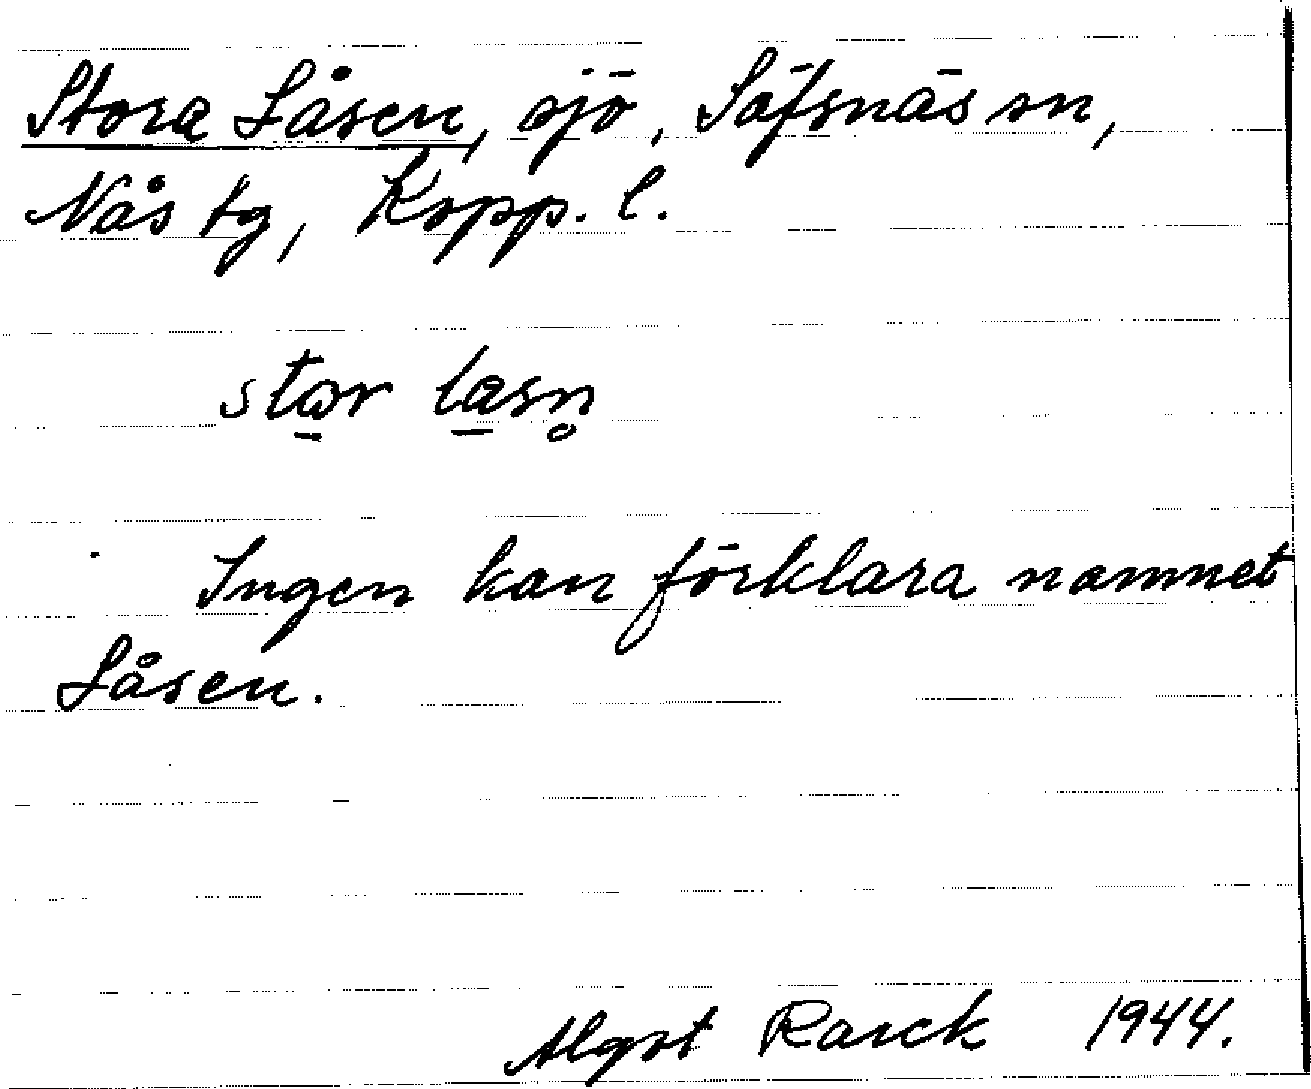 Stora Låsen, sjö, Säfsnäs sn,
Nås tg, Kopp. l.
Ingen kan förklara namnet
Låsen.
Algot Rarck 1944.